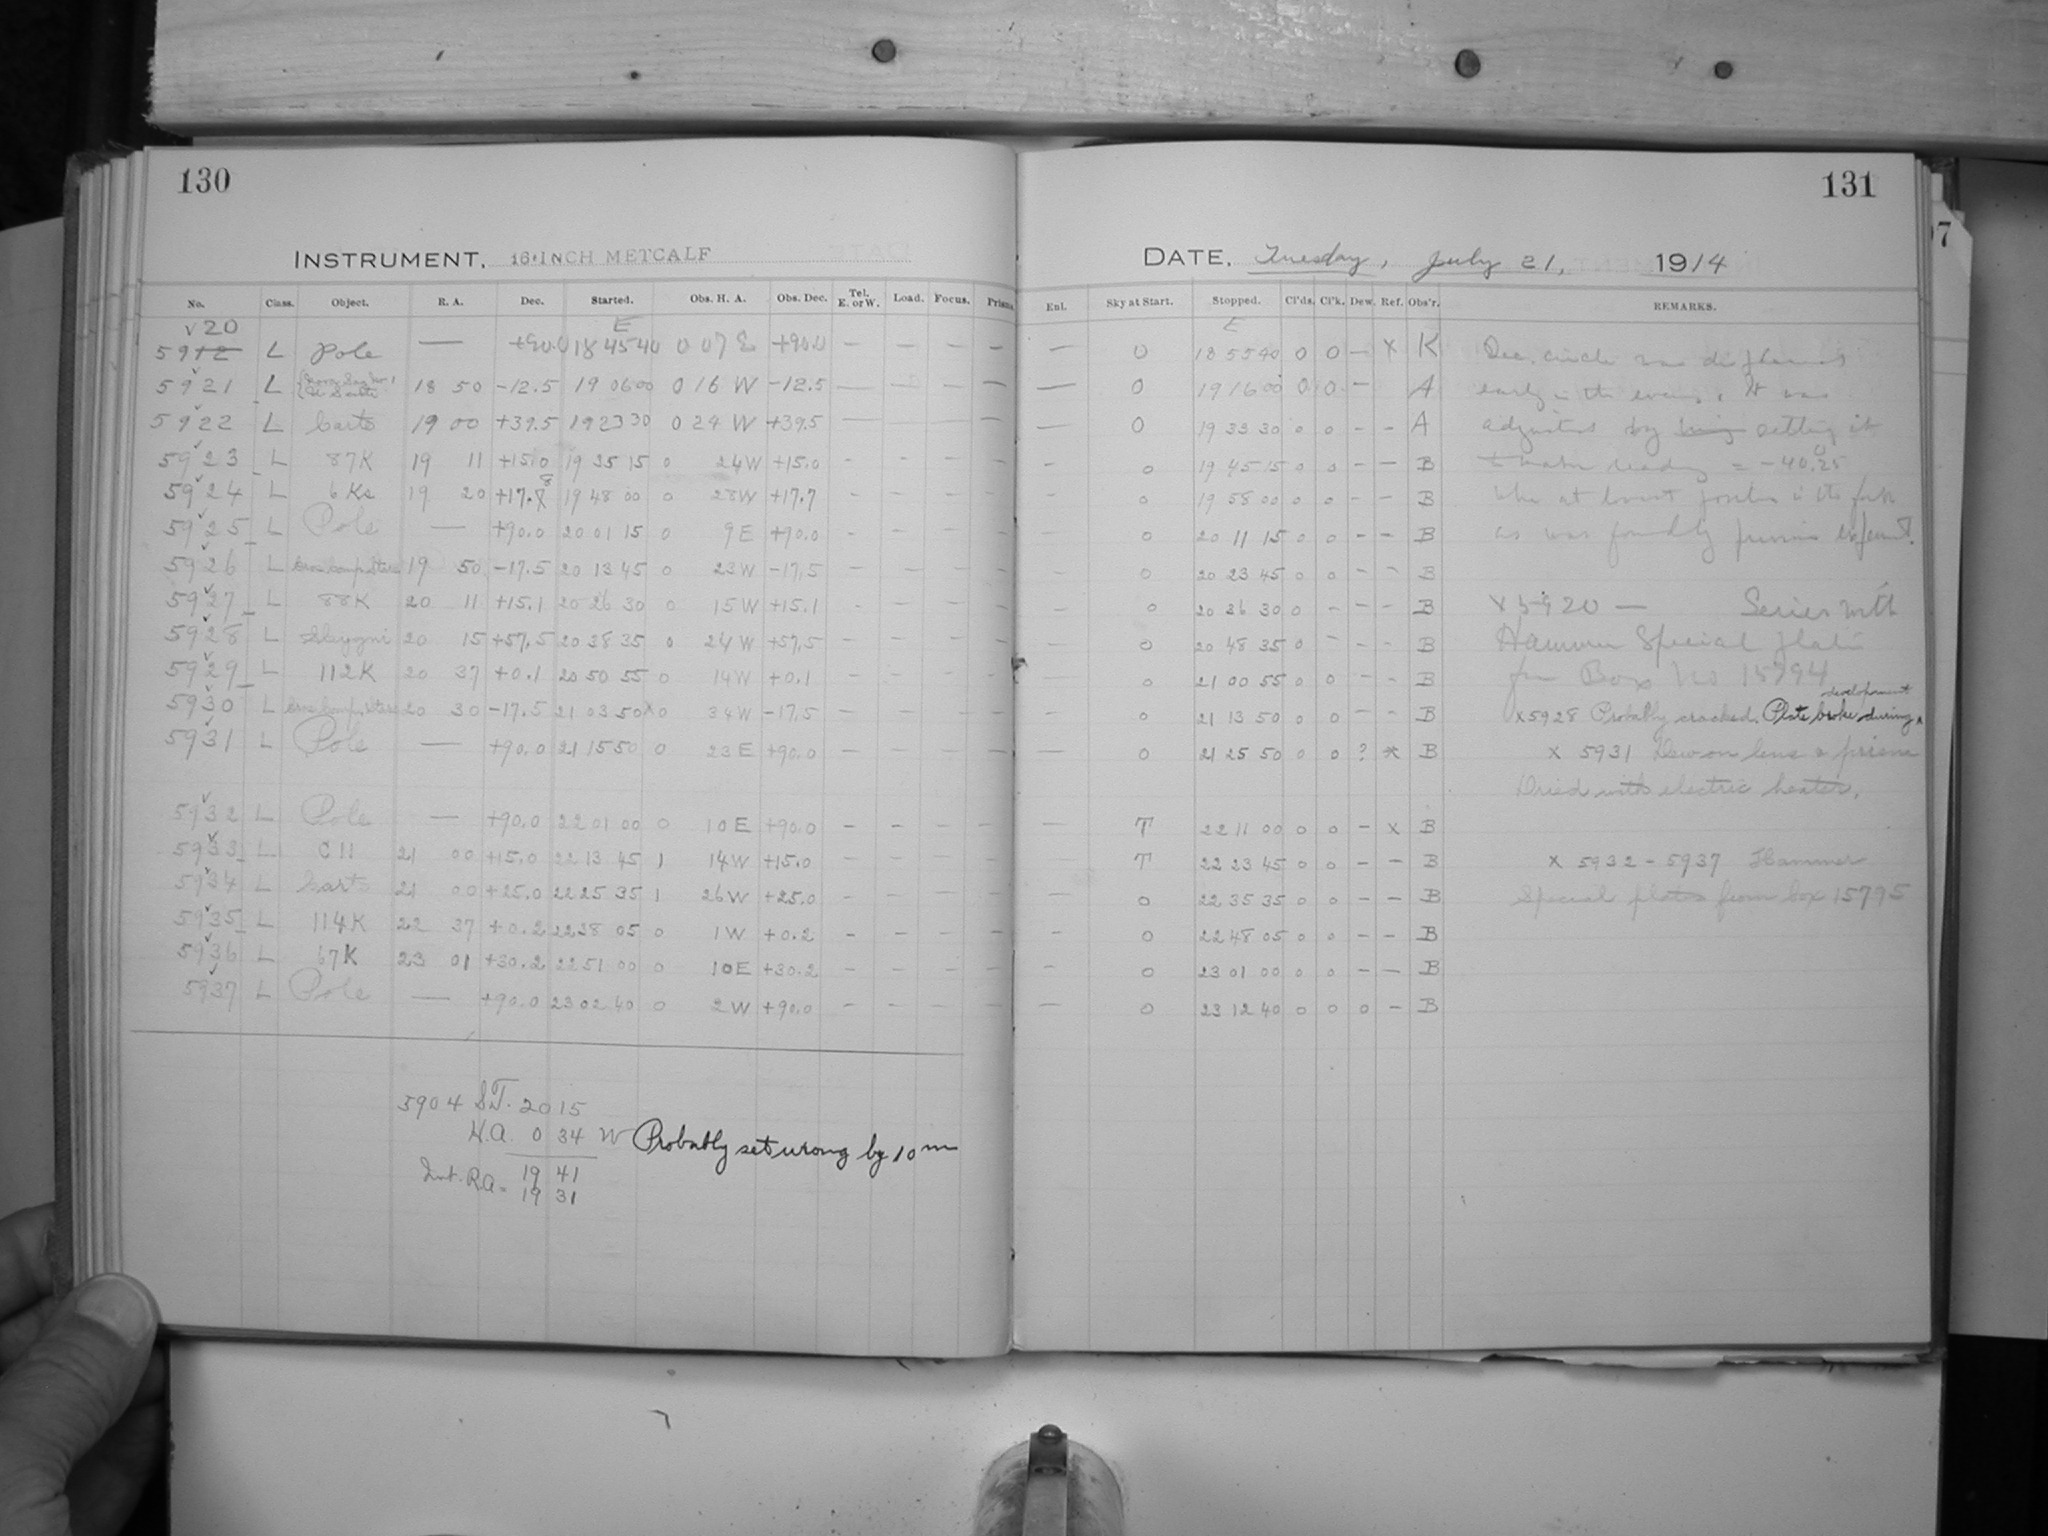 130
INSTRUMENT, 16-INCH METCALF
No. Class. Object. R. A. Dec. Started. Obs. H. A. Obs. Dec. Tel. E. or W. Load. Focus. Prism.
√ 20 E
5912 L Pole — +90.0 18 45 40 0 07 E +90.0 — — — —
5921 L 18 50 -12.5 19 06 00 0 16 W -12.5 — — — —
5922 L Carte 19 00 +39.5 19 23 30 0 24 W +39.5 — — — —
5923 L 87K 19 11 +15.0 19 35 15 0 24W +15.0 - - - -
5924 L 6 Ks 19 20 +17.8 19 48 00 0 28W +17.7 - - - -
5925 L Pole — +90.0 20 01 15 0 9E +90.0 - - - -
5926 L 19 50 -17.5 20 13 45 0 23W -17.5 - - - -
5927 L 88K 20 11 +15.1 20 26 30 0 15W +15.1 - - - -
5928 L 20 15 +57.5 20 38 35 0 24W +57.5 - - - -
5929 L 112K 20 37 +0.1 20 50 55 0 14W +0.1 - - - -
5930 L 20 30 -17.5 21 03 50 x0 34W -17.5 - - - -
5931 L Pole — +90.0 21 15 50 0 23E +90.0 - - - -
5932 L Pole — +90.0 22 01 00 0 10E +90.0 - - - -
5933 L C11 21 00 +15.0 22 13 45 1 14W +15.0 - - - -
5934 L Carte 21 00 +25.0 22 25 35 1 26W +25.0 - - - -
5935 L 114K 22 37 +0.2 22 38 05 0 1W +0.2 - - - -
5936 L 67K 23 01 +30.2 22 51 00 0 10E +30.2 - - - -
5937 L Pole — +90.0 23 02 40 0 2W +90.0 - - - -
5904 S.T. 20 15
H.A. 0 34 W Probably set wrong by 10 m
Int. R.A. = 19 41
19 31
131
DATE, Tuesday, July 21, 1914
Enl. Sky at Start. Stopped. Cl'ds. Cl'k. Dew. Ref. Obs'r. REMARKS.
E
— 0 18 55 40 0 0 — x K Dec. circle was
— 0 19 16 00 0 0 - A early in the evening. It was
— 0 19 33 30 0 0 - - A adjusted by setting it
- 0 19 45 15 0 0 - - B reading = -40.25
- 0 19 58 00 0 0 - - B at lowest position in the
- 0 20 11 15 0 0 - - B as was found by previous
- 0 20 23 45 0 0 - - B
- 0 20 36 30 0 - - - B x 5920 — Series with
- 0 20 48 35 0 - - - B Hammer Special Plate
- 0 21 00 55 0 0 - - B from Box No 15794
- 0 21 13 50 0 0 - - B x5928 Probably cracked. Plate broke during development
— 0 21 25 50 0 0 ? x B x 5931 Dew on lens & prism
Dried with electric heater.
— T 22 11 00 0 0 - x B
— T 22 23 45 0 0 - - B x 5932 - 5937 Hammer
— 0 22 35 35 0 0 - - B Special plates from box 15795
- 0 22 48 05 0 0 - - B
- 0 23 01 00 0 0 - - B
— 0 23 12 40 0 0 0 - B